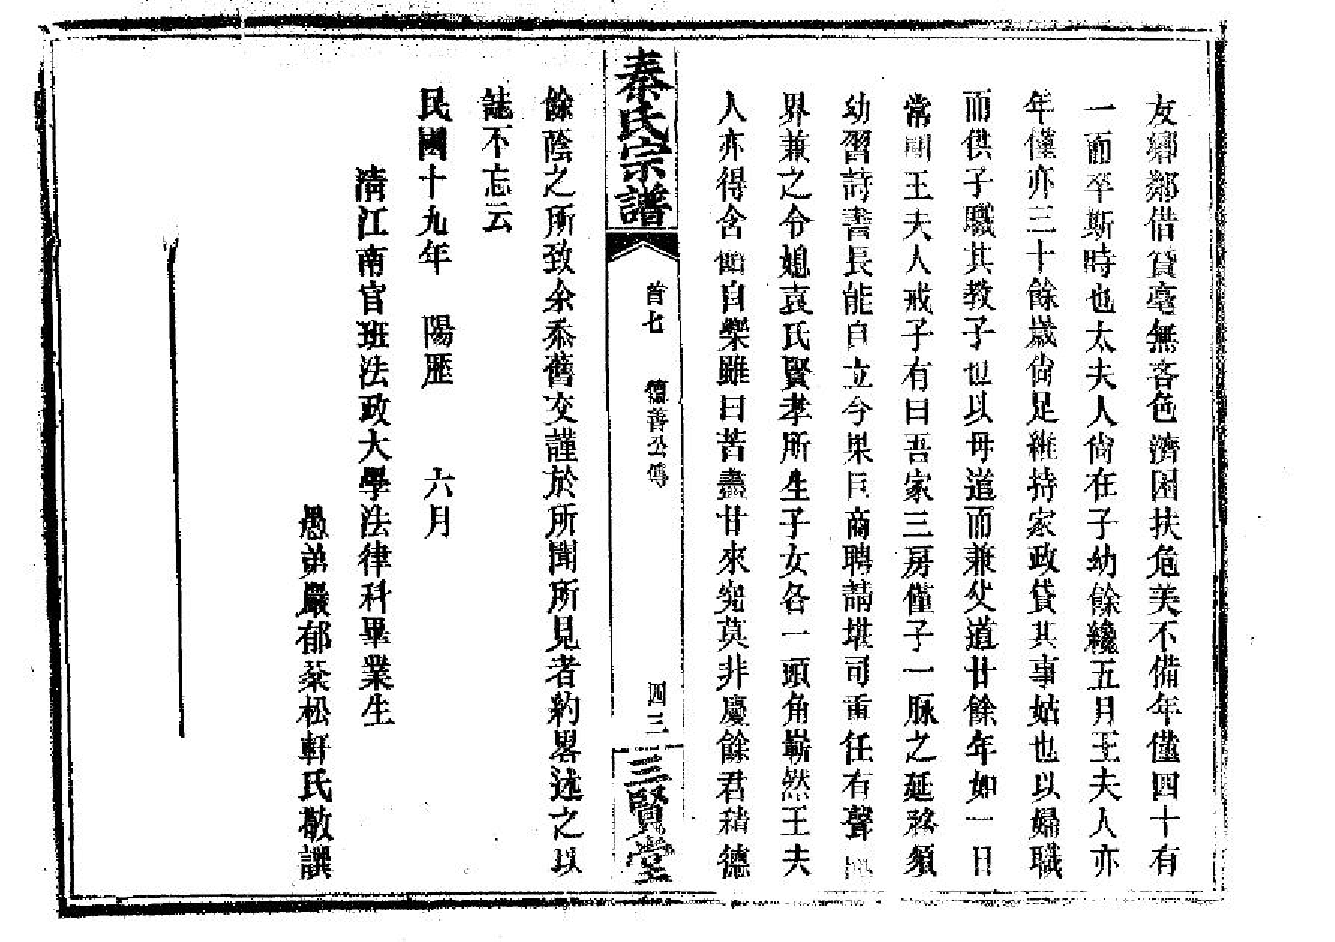 友鄉鄰借貸毫無吝色濟困扶危美不備年僅四十有
一而卒斯時也太夫人尙在子幼餘纔五月王夫人亦
年僅亦三十餘歲尙足維持家政貸其事姑也以婦職
而供子職其教子也以母道而兼父道廿餘年如一日
常聞王夫人戒子有曰吾家三房僅子一脉之延務須
幼習詩書長能自立今果巨商聘請堪司重任有聲
界兼之令媳袁氏賢孝所生子女各一頭角嶄然王夫
人亦得含飴自樂雖曰苦盡甘來究莫非慶餘君積德
秦氏宗譜
首七 德善公傳 四三
三賢堂
餘蔭之所致余忝舊交謹於所聞所見者約畧述之以
誌不忘云
民國十九年 陽歷 六月
清江南官班法政大學法律科畢業生
愚弟嚴郁棻松軒氏敬譔